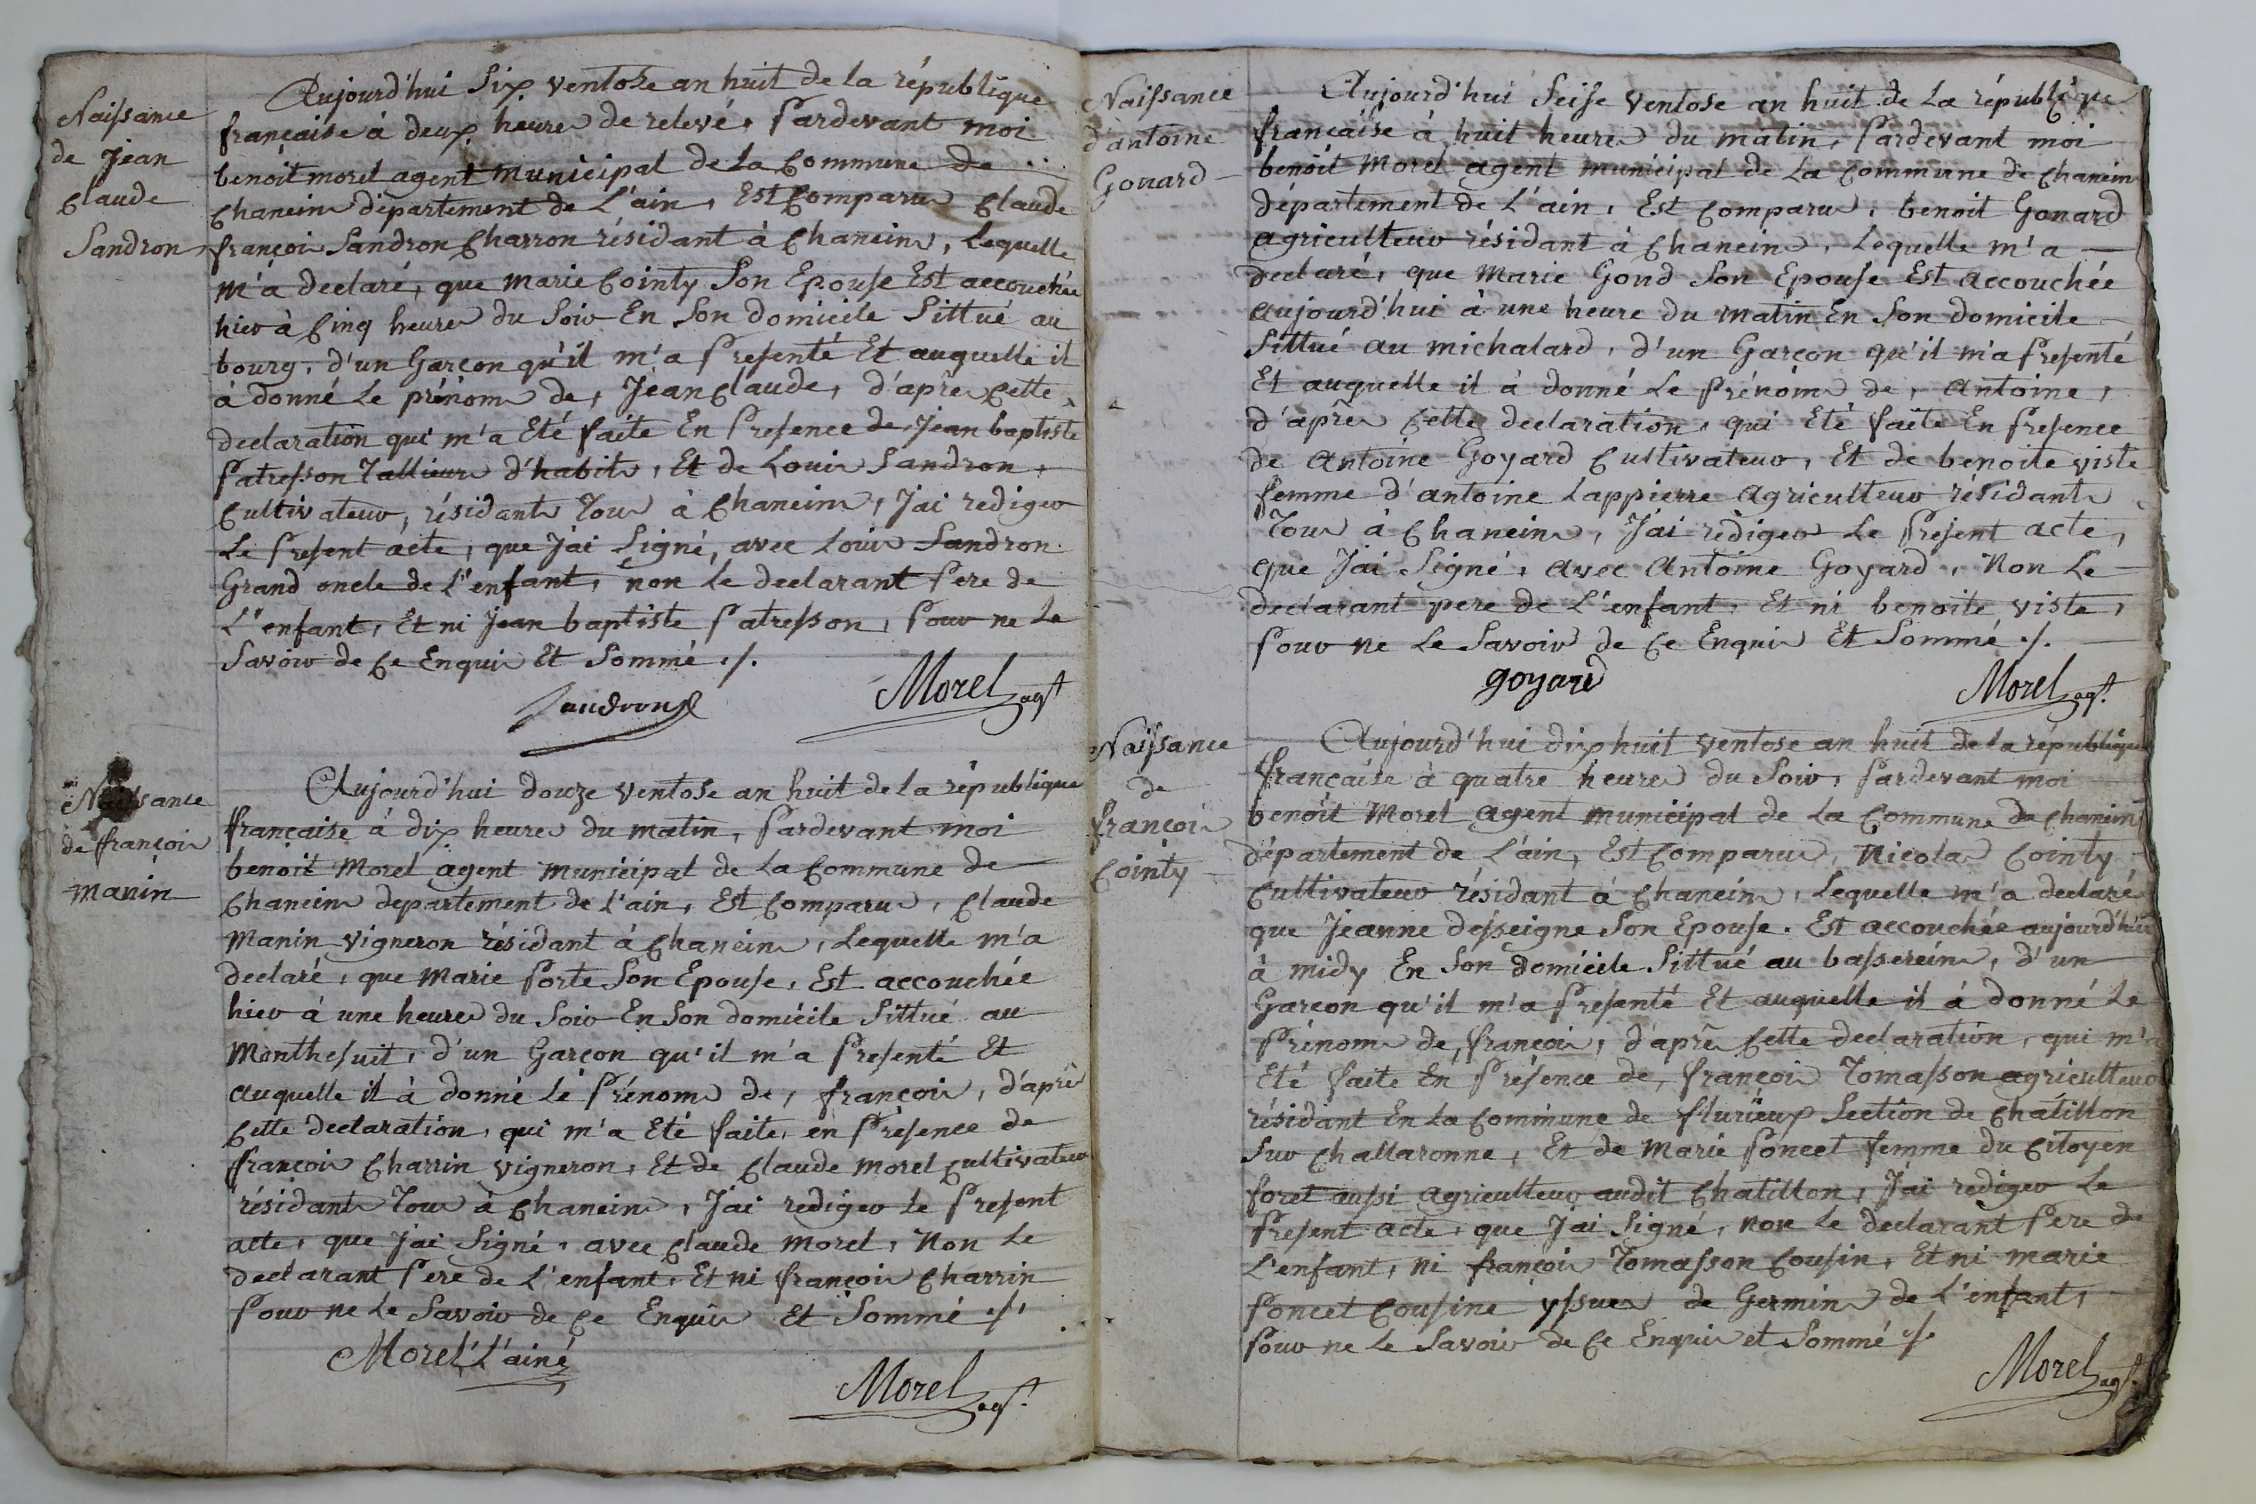 Naissance
de Jean
Claude
Sandron
Aujourd'hui Six ventose an huit de la république
française à deux heures de relevé, Pardevant moi
benoit morel agent municipal de la Commune de
Chaneins département de L'ain, Est Comparu Claude
françois Sandron Charron résidant à Chaneins, Lequelle
m'a declaré, que marie Cointy Son Epouse Est accouchée
hier à Cinq heures du Soir En Son domicile Sittué au
bourg, d'un Garçon qu'il m'a Presenté Et auquelle il
à donné Le prénom de, Jean Claude, d'après Cette
declaration qui m'a Eté faite En Presence de Jean baptiste
Patresson Tallieur d'habits, Et de Louis Sandron,
Cultivateur, résidants Tous à Chaneins, J'ai rediger
Le Present acte, que J'ai Signé, avec Louis Sandron
Grand oncle de L'enfant, non Le declarant Pere de
L'enfant, Et ni Jean baptiste Patresson, Pour ne Le
Savoir de Ce Enquis Et Sommé ./.
Sandron
Morel agt
Naissance
de françois
manin
Aujourd'hui douze ventose an huit de la république
française à dix heures du matin, Pardevant moi
benoit Morel agent municipal de La Commune de
Chaneins departement de L'ain, Est Comparu, Claude
Manin vigneron résidant à Chaneins, Lequelle m'a
declaré, que Marie Porte Son Epouse, Est accouchée
hier à une heures du Soir En Son domicile Sittué au
Monthesuit, d'un Garçon qu'il m'a Presenté Et
auquelle il à donné Le Prénom de, françois, d'après
Cette declaration, qui m'a Eté faite, en Présence de
françois Charrin vigneron, Et de Claude morel Cultivateur
résidants Tous à Chaneins, J'ai rediger Le Present
acte, que J'ai Signé, avec Claude morel, Non Le
declarant Pere de L'enfant, Et ni françois Charrin
Pour ne Le Savoir de Ce Enquis Et Sommé ./.
Morel L'ainé
Morel agt.
Naissance
d'antoine
Gonard
Aujourd'hui Seise ventose an huit de La république
française à huit heures du matin, Pardevant moi
benoit Morel agent municipal de La Commune de Chaneins
département de L'ain, Est Comparu, benoit Gonard
agriculteur résidant à Chaneins, Lequelle m'a
declaré, que Marie Gond Son Epouse Est accouchée
aujourd'hui à une heure du matin En Son domicile
Sittué au michalard, d'un Garçon qu'il m'a Presenté
Et auquelle il à donné Le Prénom de, Antoine,
d'après Cette declaration, qui Eté faite En Presence
de Antoine Goyard Cultivateur, Et de benoite viste
femme d'antoine Lappierre agriculteur résidants
Tous à Chaneins, J'ai rediger Le Present acte,
que J'ai Signé, avec Antoine Goyard, Non Le
declarant pere de L'enfant, Et ni benoite viste,
Pour ne Le Savoir de Ce Enquis Et Sommé ./.
goyard
Morel agt.
Naissance
de
françois
Cointy
Aujourd'hui dix huit ventose an huit de la république
française à quatre heures du Soir, Pardevant moi
benoit Morel agent municipal de La Commune de Chaneins
département de L'ain, Est Comparu, Nicolas Cointy
Cultivateur résidant à Chaneins, Lequelle m'a declaré
que Jeanne desseigne Son Epouse, Est accouchée aujourd'hui
à midy En Son domicile Sittué au bassereins, d'un
Garçon qu'il m'a Presenté Et auquelle il à donné Le
Prénom de, françois, d'après Cette declaration, qui m'a
Eté faite En Présence de, françois Tomasson agriculteur
résidant En La Commune de flurieux Section de Chatillon
Sur Challaronne, Et de Marie Poncet femme du Citoyen
foret aussi agriculteur audit Chatillon, J'ai rediger Le
Present acte, que J'ai Signé, non Le declarant Pere de
L'enfant, ni françois Tomasson Cousin, Et ni marie
Poncet Cousine yssues de Germins de L'enfant,
Pour ne Le Savoir de Ce Enquis et Sommé ./.
Morel agt.